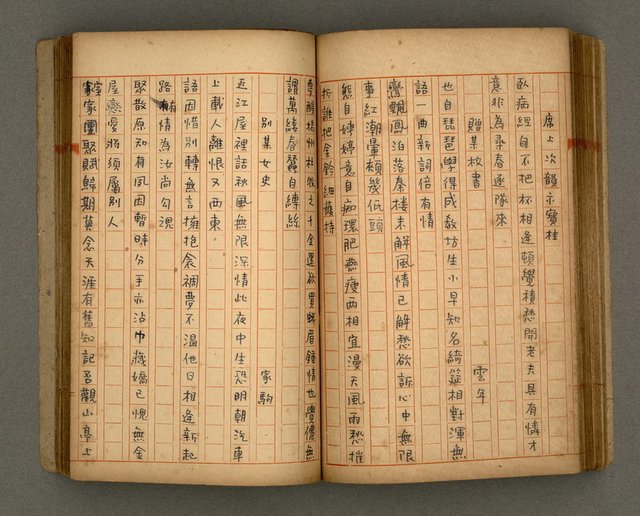 席上次韻示寶桂
臥病經旬不把杯相逢頓覺積愁開老夫具有憐才
意非為尋春逐隊來
贈某校書 雲年
也自琵琶學得成教坊生小早知名綺筵相對渾無
語一曲新詞倍有情
鸞飄鳳泊落秦樓未解風情已解愁欲訴心中無限
事紅潮暈頰幾低頭
態自娉婷意自痴環肥燕瘦兩相宜漫天風雨愁摧
折誰把金鈴細護持
夢醒揚州杜牧之千金還欲買蛾眉鍾情也覺儂無
謂萬緒春蠶自縛絲
別某女史 家駒
近江屋裡話秋風無限深情此夜中生恐明朝汽車
上載人離恨又西東
語因惜別轉無言擁抱衾裯夢不溫他日相逢新起
路有情為汝尚勾魂
聚散原知有夙因暫時分手亦沾巾藏嬌已愧無金
屋戀愛將須屬別人
家團聚賦歸期莫念天涯有舊知記吾觀山亭上